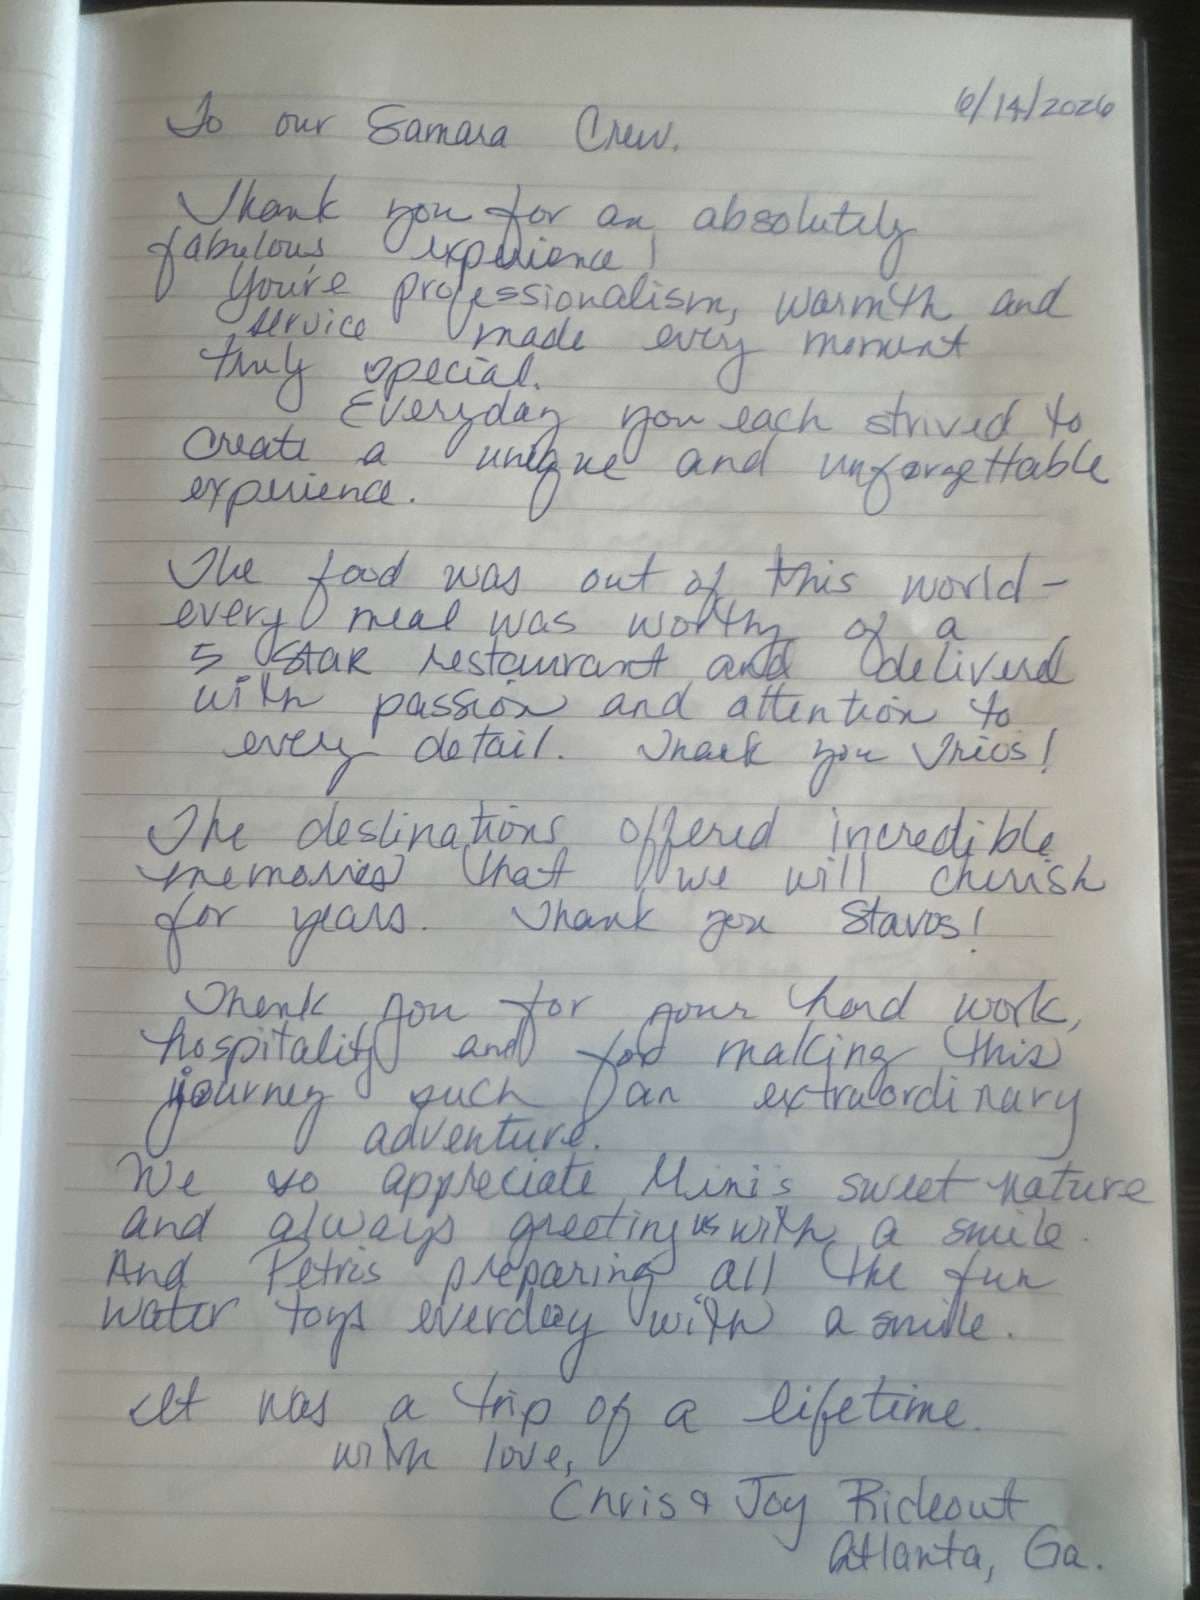 6/14/2026
To our Samara Crew.
Thank you for an absolutely
fabulous experience!
You're professionalism, warmth and
service made every moment
truly special.
Everyday you each strived to
create a unique and unforgettable
experience.
The food was out of this world -
every meal was worthy of a
5 star restaurant and delivered
with passion and attention to
every detail. Thank you Trios!
The destinations offered incredible
memories that we will cherish
for years. Thank you Stavos!
Thank you for your hard work,
hospitality and for making this
journey such an extraordinary
adventure.
We so appreciate Mimi's sweet nature
and always greeting us with a smile.
And Petris preparing all the fun
water toys everday with a smile.
It was a trip of a lifetime.
with love,
Chris & Joy Rideout
Atlanta, Ga.